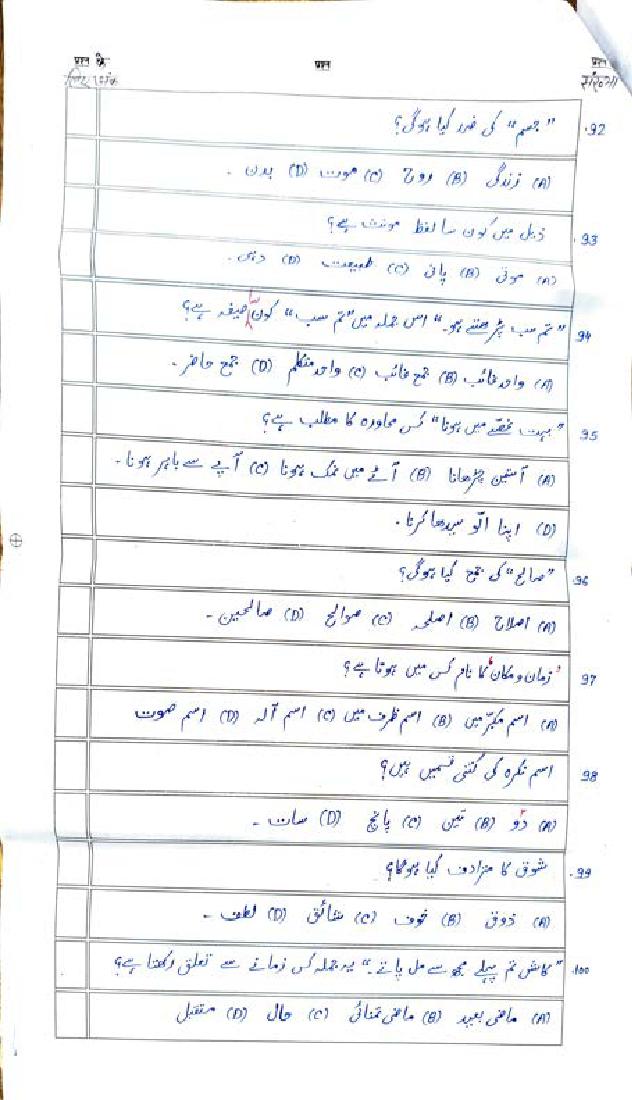 प्रश्न के लिए अंक प्रश्न प्रश्न संख्या
92. "جسم" کی ضد کیا ہوگی؟
(A) زندگی (B) روح (C) موت (D) بدن ۔
93. ذیل میں کون سا لفظ مونث ہے؟
(A) موتی (B) پانی (C) طبیعت (D) دہی۔
94 "تم سب پڑھتے ہو۔" اس جملہ میں "تم سب" کون صیغہ ہے؟
(A) واحد غائب (B) جمع غائب (C) واحد متکلم (D) جمع حاضر ۔
95 "بہت غصّے میں ہونا" کس محاورہ کا مطلب ہے؟
(A) آستین چڑھانا (B) آٹے میں نمک ہونا (C) آپے سے باہر ہونا ۔
(D) اپنا الّو سیدھا کرنا ۔
96 "صالح" کی جمع کیا ہوگی؟
(A) اصلاح (B) اصلحہ (C) صوالح (D) صالحین ۔
97 'زمان و مکان' کا نام کس میں ہوتا ہے؟
(A) اسم مکبّر میں (B) اسم ظرف میں (C) اسم آلہ (D) اسم صوت
98 اسم نکرہ کی کتنی قسمیں ہیں؟
(A) دو (B) تین (C) پانچ (D) سات ۔
99. شوق کا مترادف کیا ہوگا؟
(A) ذوق (B) خوف (C) شائق (D) لطف ۔
100. "کاش تم پہلے مجھ سے مل پاتے۔" یہ جملہ کس زمانے سے تعلق رکھتا ہے؟
(A) ماضی بعید (B) ماضی تمنائی (C) حال (D) مستقبل